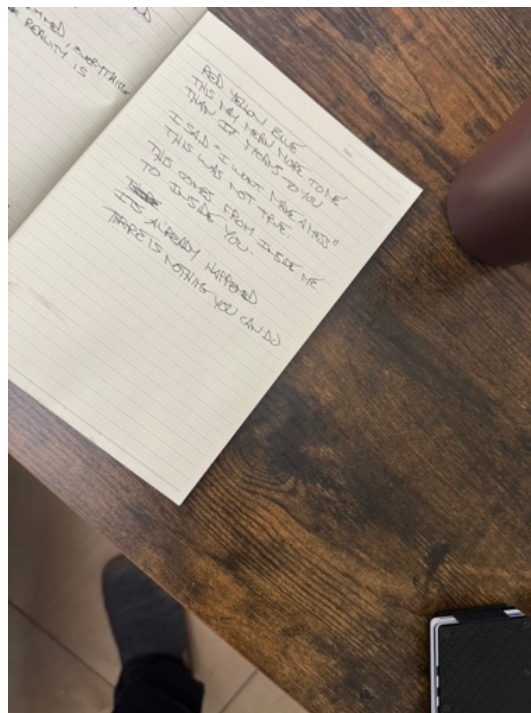 REALITY IS
RED YELLOW BLUE
THIS MAY MEAN MORE TO ME
THAN IT MEANS TO YOU
I SAID "I WONT MAKE A MESS"
THIS WAS NOT TRUE.
THIS COMES FROM INSIDE ME
TO INSIDE YOU.
ITS ALREADY HAPPENED
THERE IS NOTHING YOU CAN DO